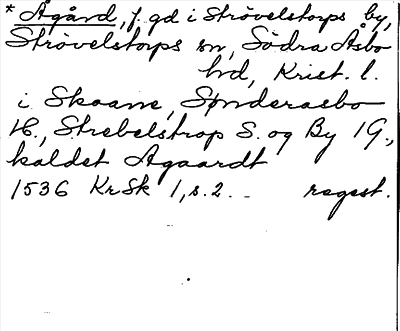 * Ågård, f. gd i Strövelstorps by,
Strövelstorps sn, Södra Åsbo
hd, Krist. l.
i Skaane, Sønderaasbo
H., Strebelstrop S. og By 1 G.,
kaldet Agaardt
1536 KrSk 1, s. 2. . regest.